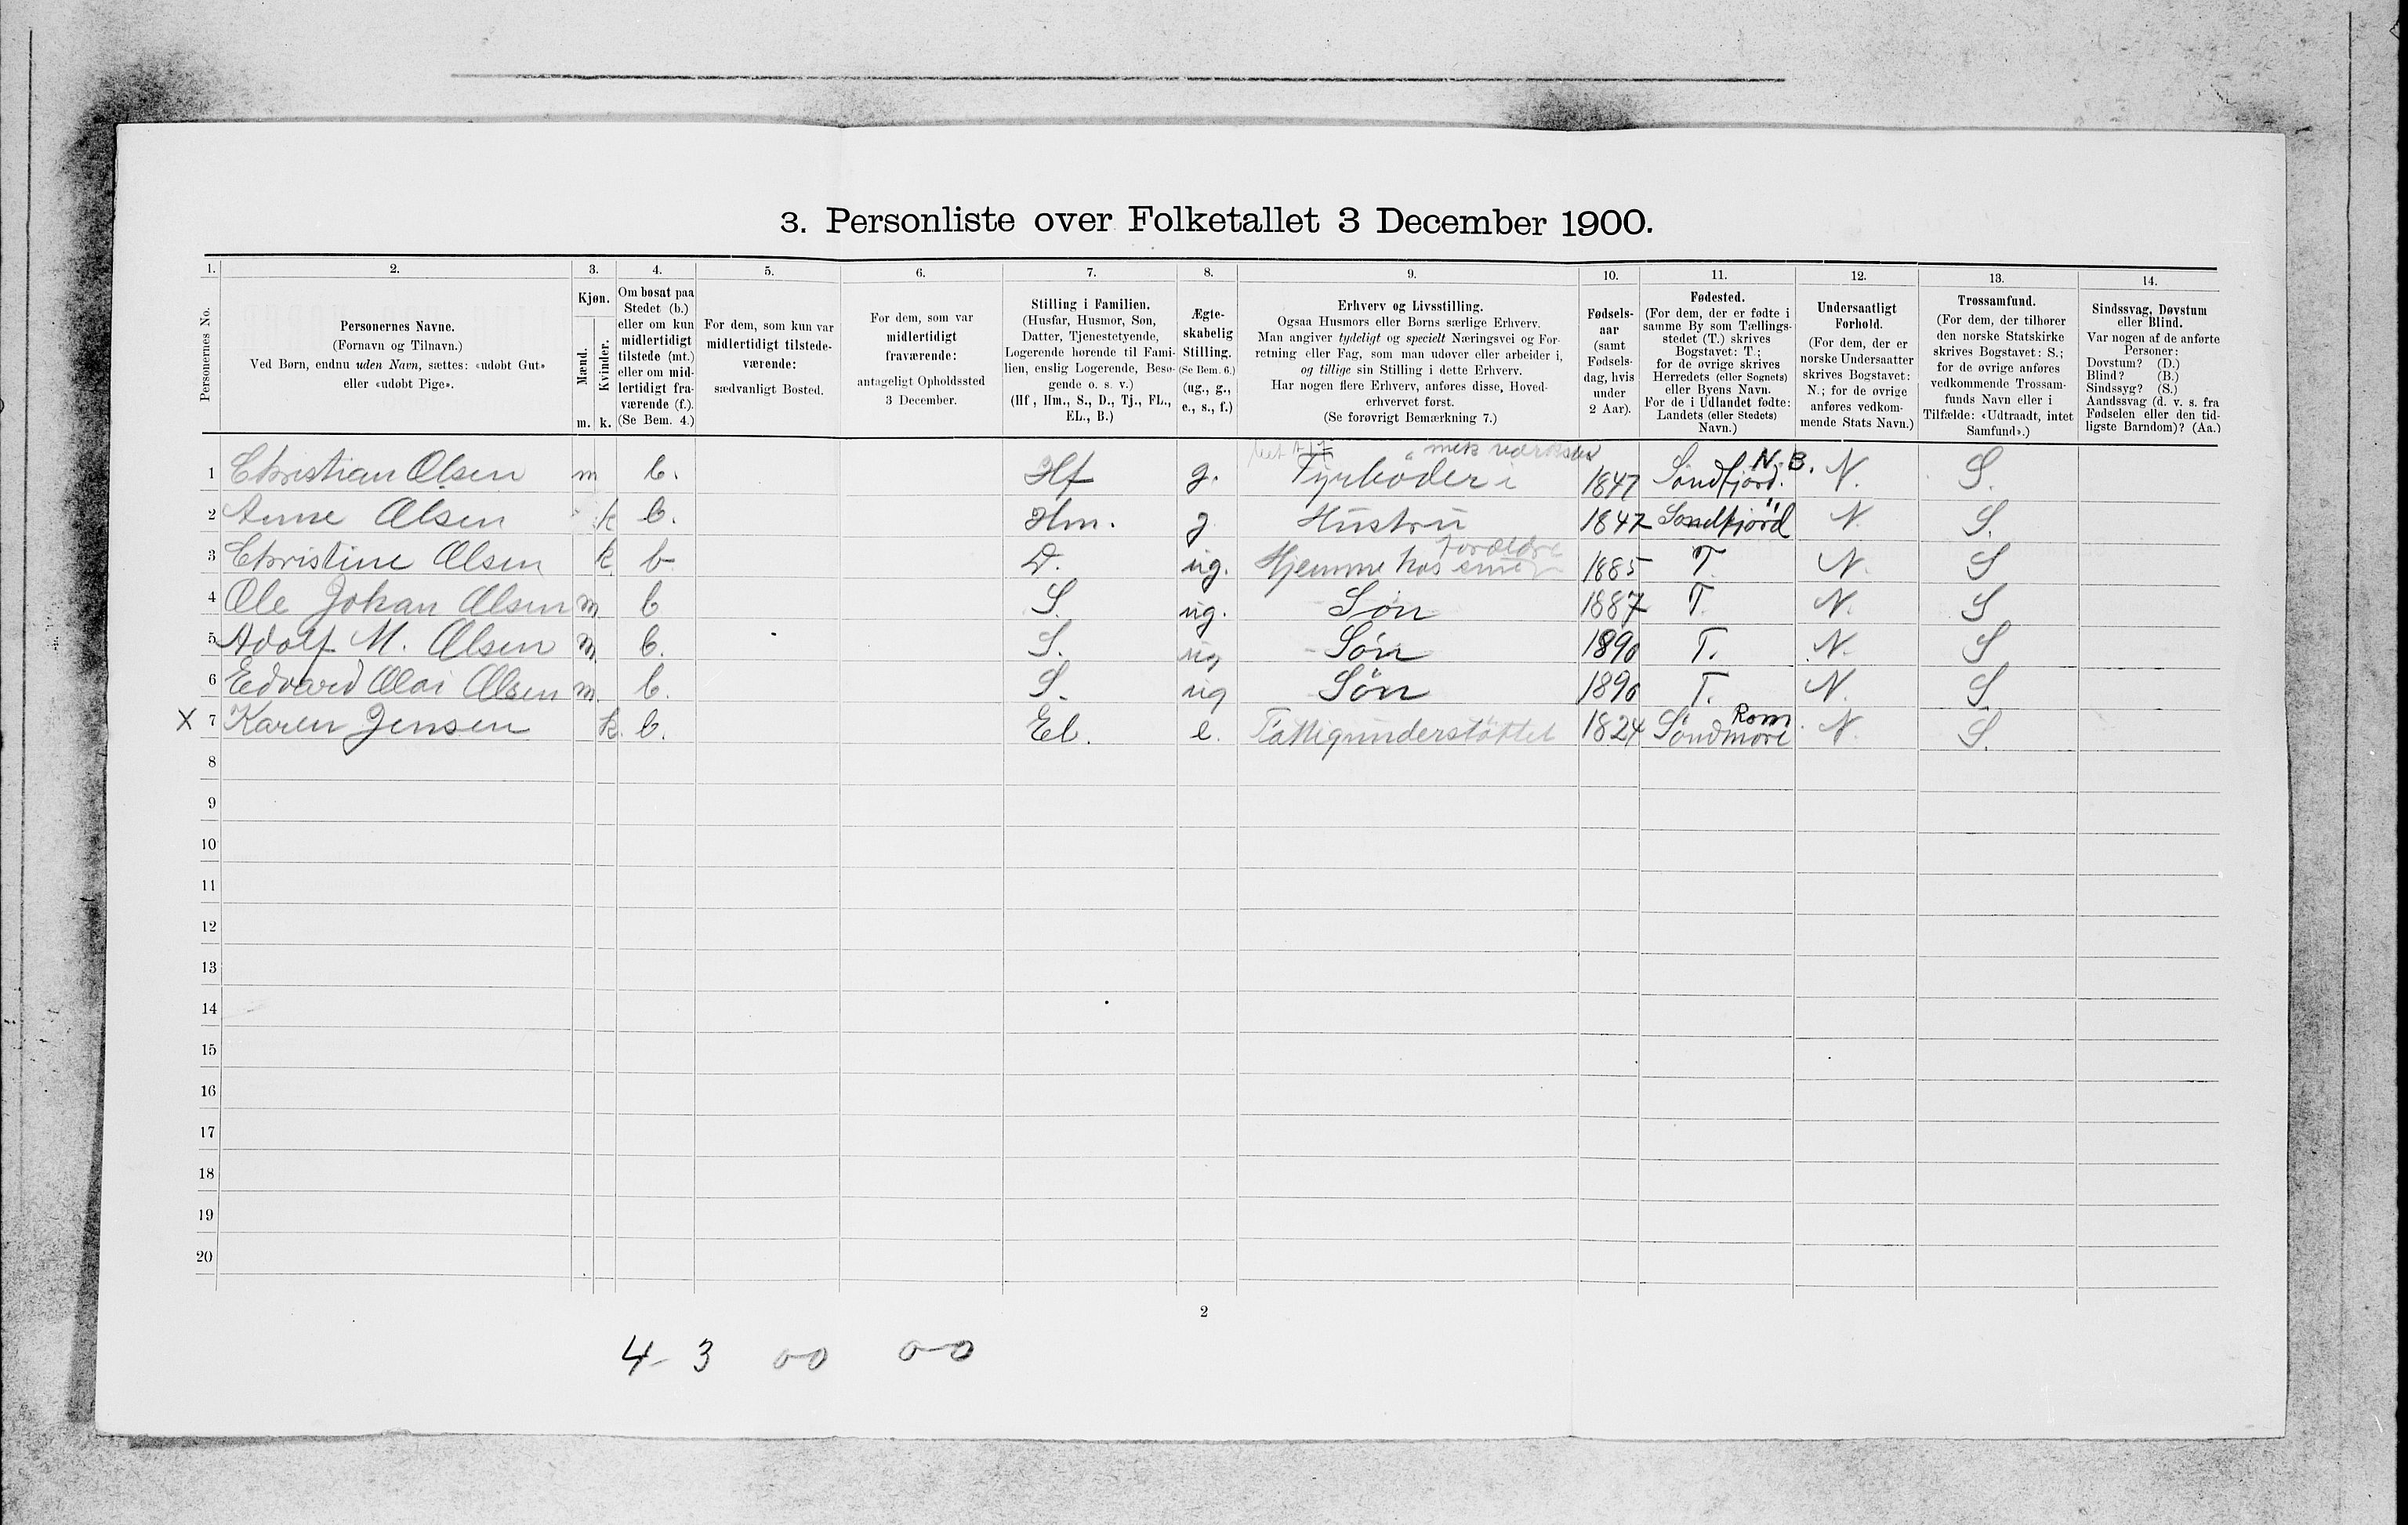 3. Personliste over Folketallet 3 December 1900.
1. 2. 3. 4. 5. 6. 7. 8. 9. 10. 11. 12. 13. 14.
Personernes No.
Personernes Navne.
(Fornavn og Tilnavn.)
Ved Børn, endnu uden Navn, sættes: «udøbt Gut»
eller «udøbt Pige».
Kjøn.
Mænd.
Kvinder.
m. k.
Om bosat paa
Stedet (b.)
eller om kun
midlertidigt
tilstede (mt.)
eller om mid-
lertidigt fra-
værende (f.).
(Se Bem. 4.)
For dem, som kun var
midlertidigt tilstede-
værende:
sædvanligt Bosted.
For dem, som var
midlertidigt
fraværende:
antageligt Opholdssted
3 December.
Stilling i Familien.
(Husfar, Husmor, Søn,
Datter, Tjenestetyende,
Logerende hørende til Fami-
lien, enslig Logerende, Besø-
gende o. s. v.)
(Hf, Hm., S., D., Tj., FL.,
EL., B.)
Ægte-
skabelig
Stilling.
(Se Bem. 6.)
(ug., g.,
e., s., f.)
Erhverv og Livsstilling.
Ogsaa Husmors eller Børns særlige Erhverv.
Man angiver tydeligt og specielt Næringsvei og For-
retning eller Fag, som man udøver eller arbeider i,
og tillige sin Stilling i dette Erhverv.
Har nogen flere Erhverv, anføres disse, Hoved-
erhvervet først.
(Se forøvrigt Bemærkning 7.)
Fødsels-
aar
(samt
Fødsels-
dag, hvis
under
2 Aar).
Fødested.
(For dem, der er fødte i
samme By som Tællings-
stedet (T.) skrives
Bogstavet: T.;
for de øvrige skrives
Herredets (eller Sognets)
eller Byens Navn.
For de i Udlandet fødte:
Landets (eller Stedets)
Navn.)
Undersaatligt
Forhold.
(For dem, der er
norske Undersaatter
skrives Bogstavet:
N.; for de øvrige
anføres vedkom-
mende Stats Navn.)
Trossamfund.
(For dem, der tilhører
den norske Statskirke
skrives Bogstavet: S.;
for de øvrige anføres
vedkommende Trossam-
funds Navn eller i
Tilfælde: «Udtraadt, intet
Samfund».)
Sindssvag, Døvstum
eller Blind.
Var nogen af de anførte
Personer:
Døvstum? (D.)
Blind? (B.)
Sindssyg? (S.)
Aandssvag (d. v. s. fra
Fødselen eller den tid-
ligste Barndom)? (Aa.)
mek værksted
N. B.
1 Christian Olsen m b. Hf g. Fyrbøder i 1847 Søndfjord. N. S.
2 Anne Olsen k b. Hm. g Hustru 1847 Søndfjord N. S.
Forældre
3 Christine Olsen k b D. ug. Hjemme hos sine 1885 T. N. S
4 Ole Johan Olsen m b S. ug. Søn 1887 T. N. S
5 Adolf M. Olsen m b. S. ug Søn 1890 T. N. S
6 Edvard Olai Olsen m. b. S. ug Søn 1890 T. N. S.
Rom
X 7 Karen Jensen k. b. El. e. Fattigunderstøttet 1824 Søndmøre N. S.
8
9
10
11
12
13
14
15
16
17
18
19
20
2
4 - 3 0-0 0-0